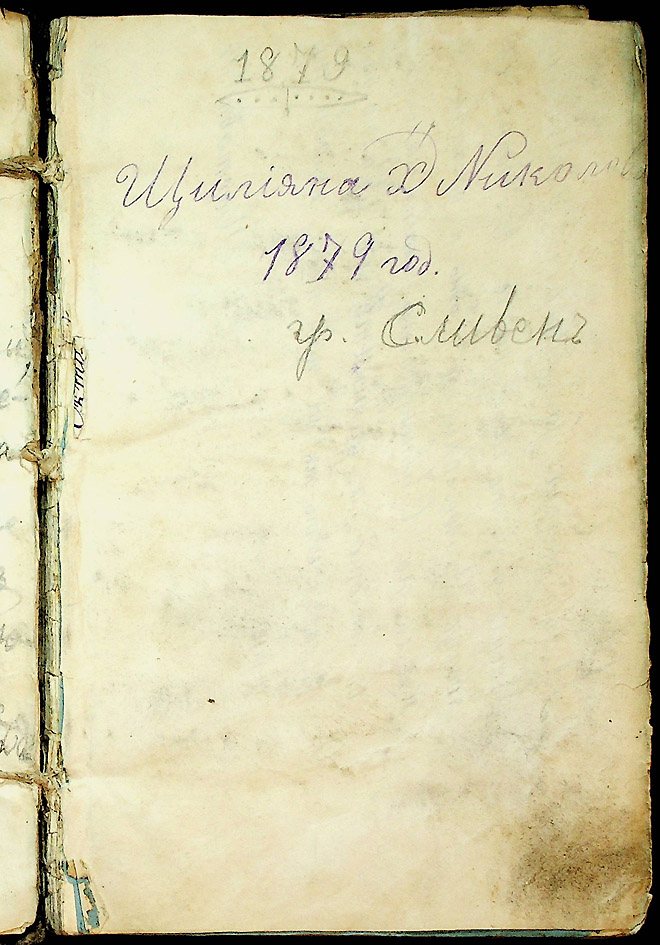 1879
Щиліяна Х Николов
1879 год.
гр. Сливенъ